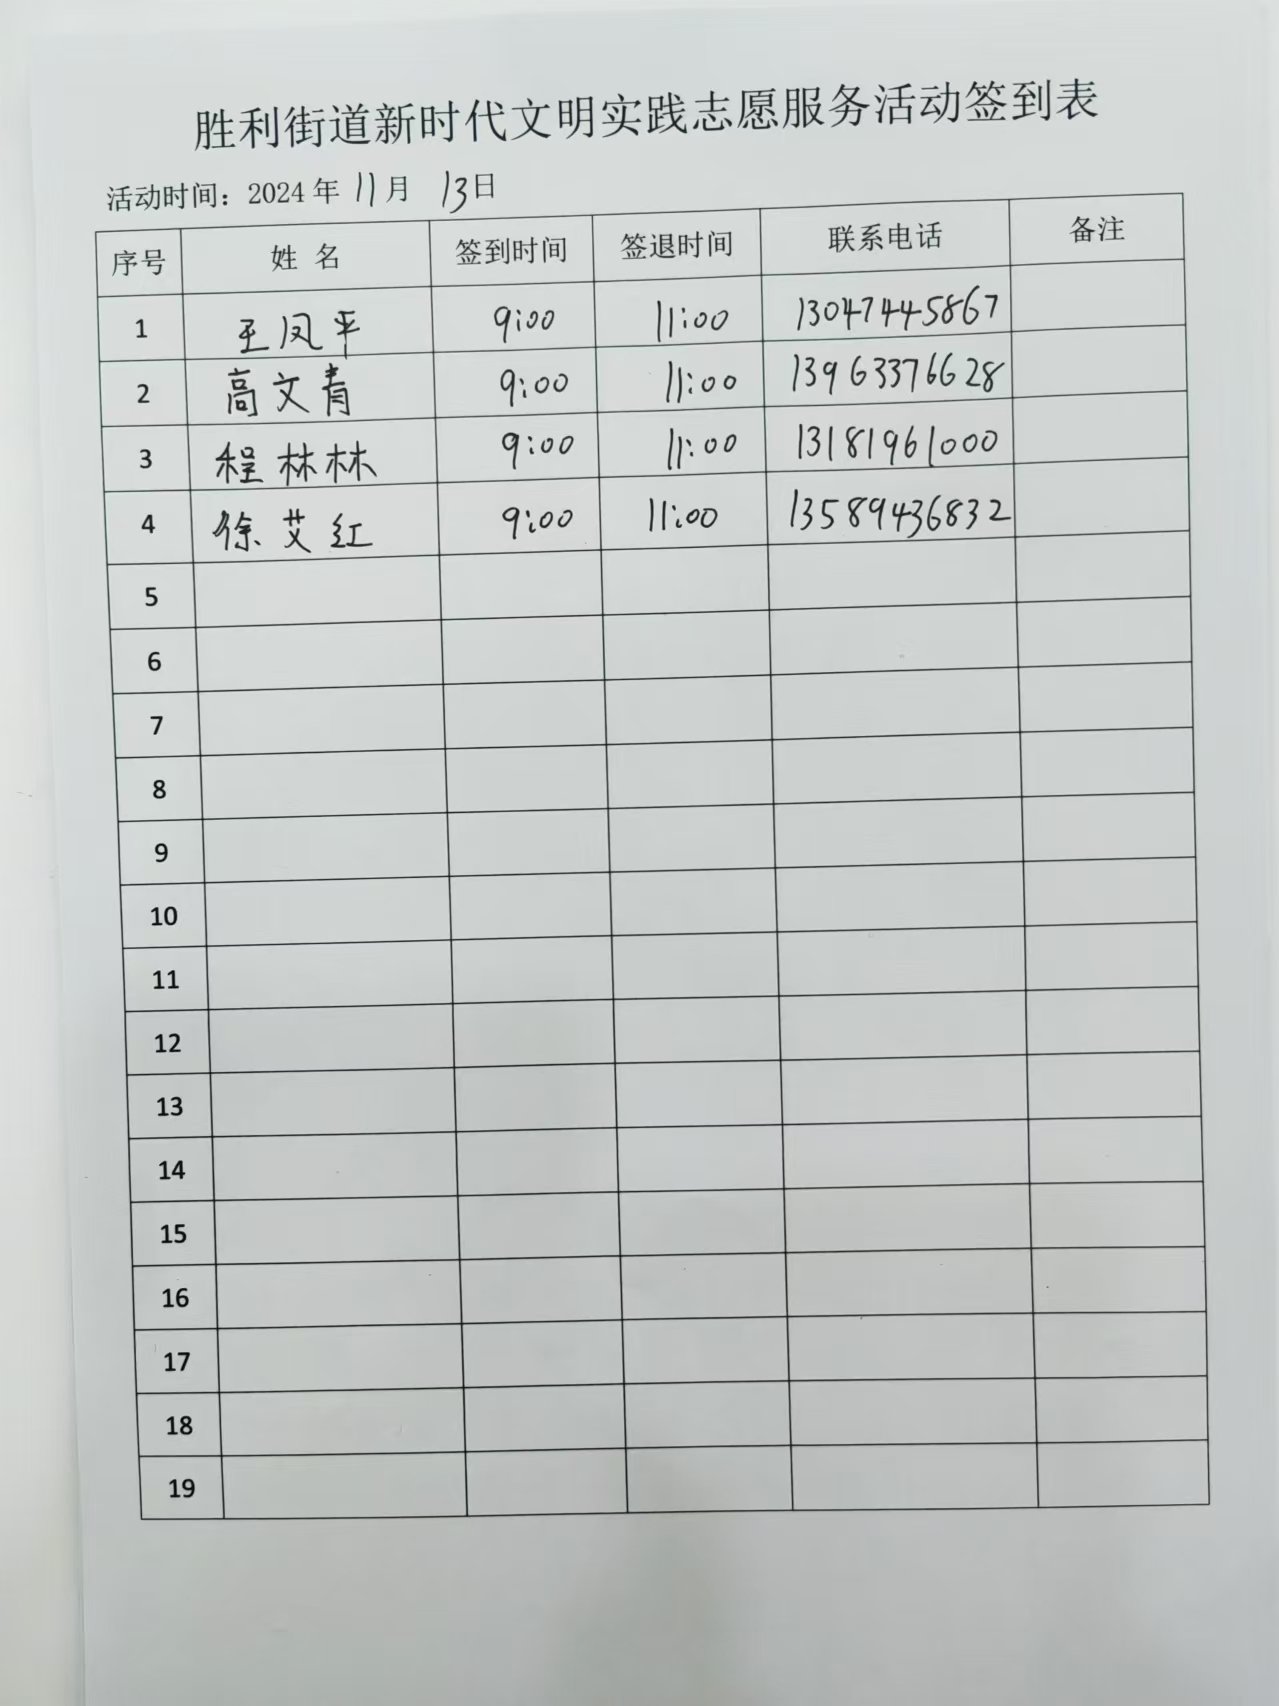 胜利街道新时代文明实践志愿服务活动签到表
活动时间：2024年 11月 13日
序号 姓 名 签到时间 签退时间 联系电话 备注
1 王凤平 9:00 11:00 13047445867
2 高文青 9:00 11:00 13963376628
3 程林林 9:00 11:00 13181961000
4 徐艾红 9:00 11:00 13589436832
5
6
7
8
9
10
11
12
13
14
15
16
17
18
19